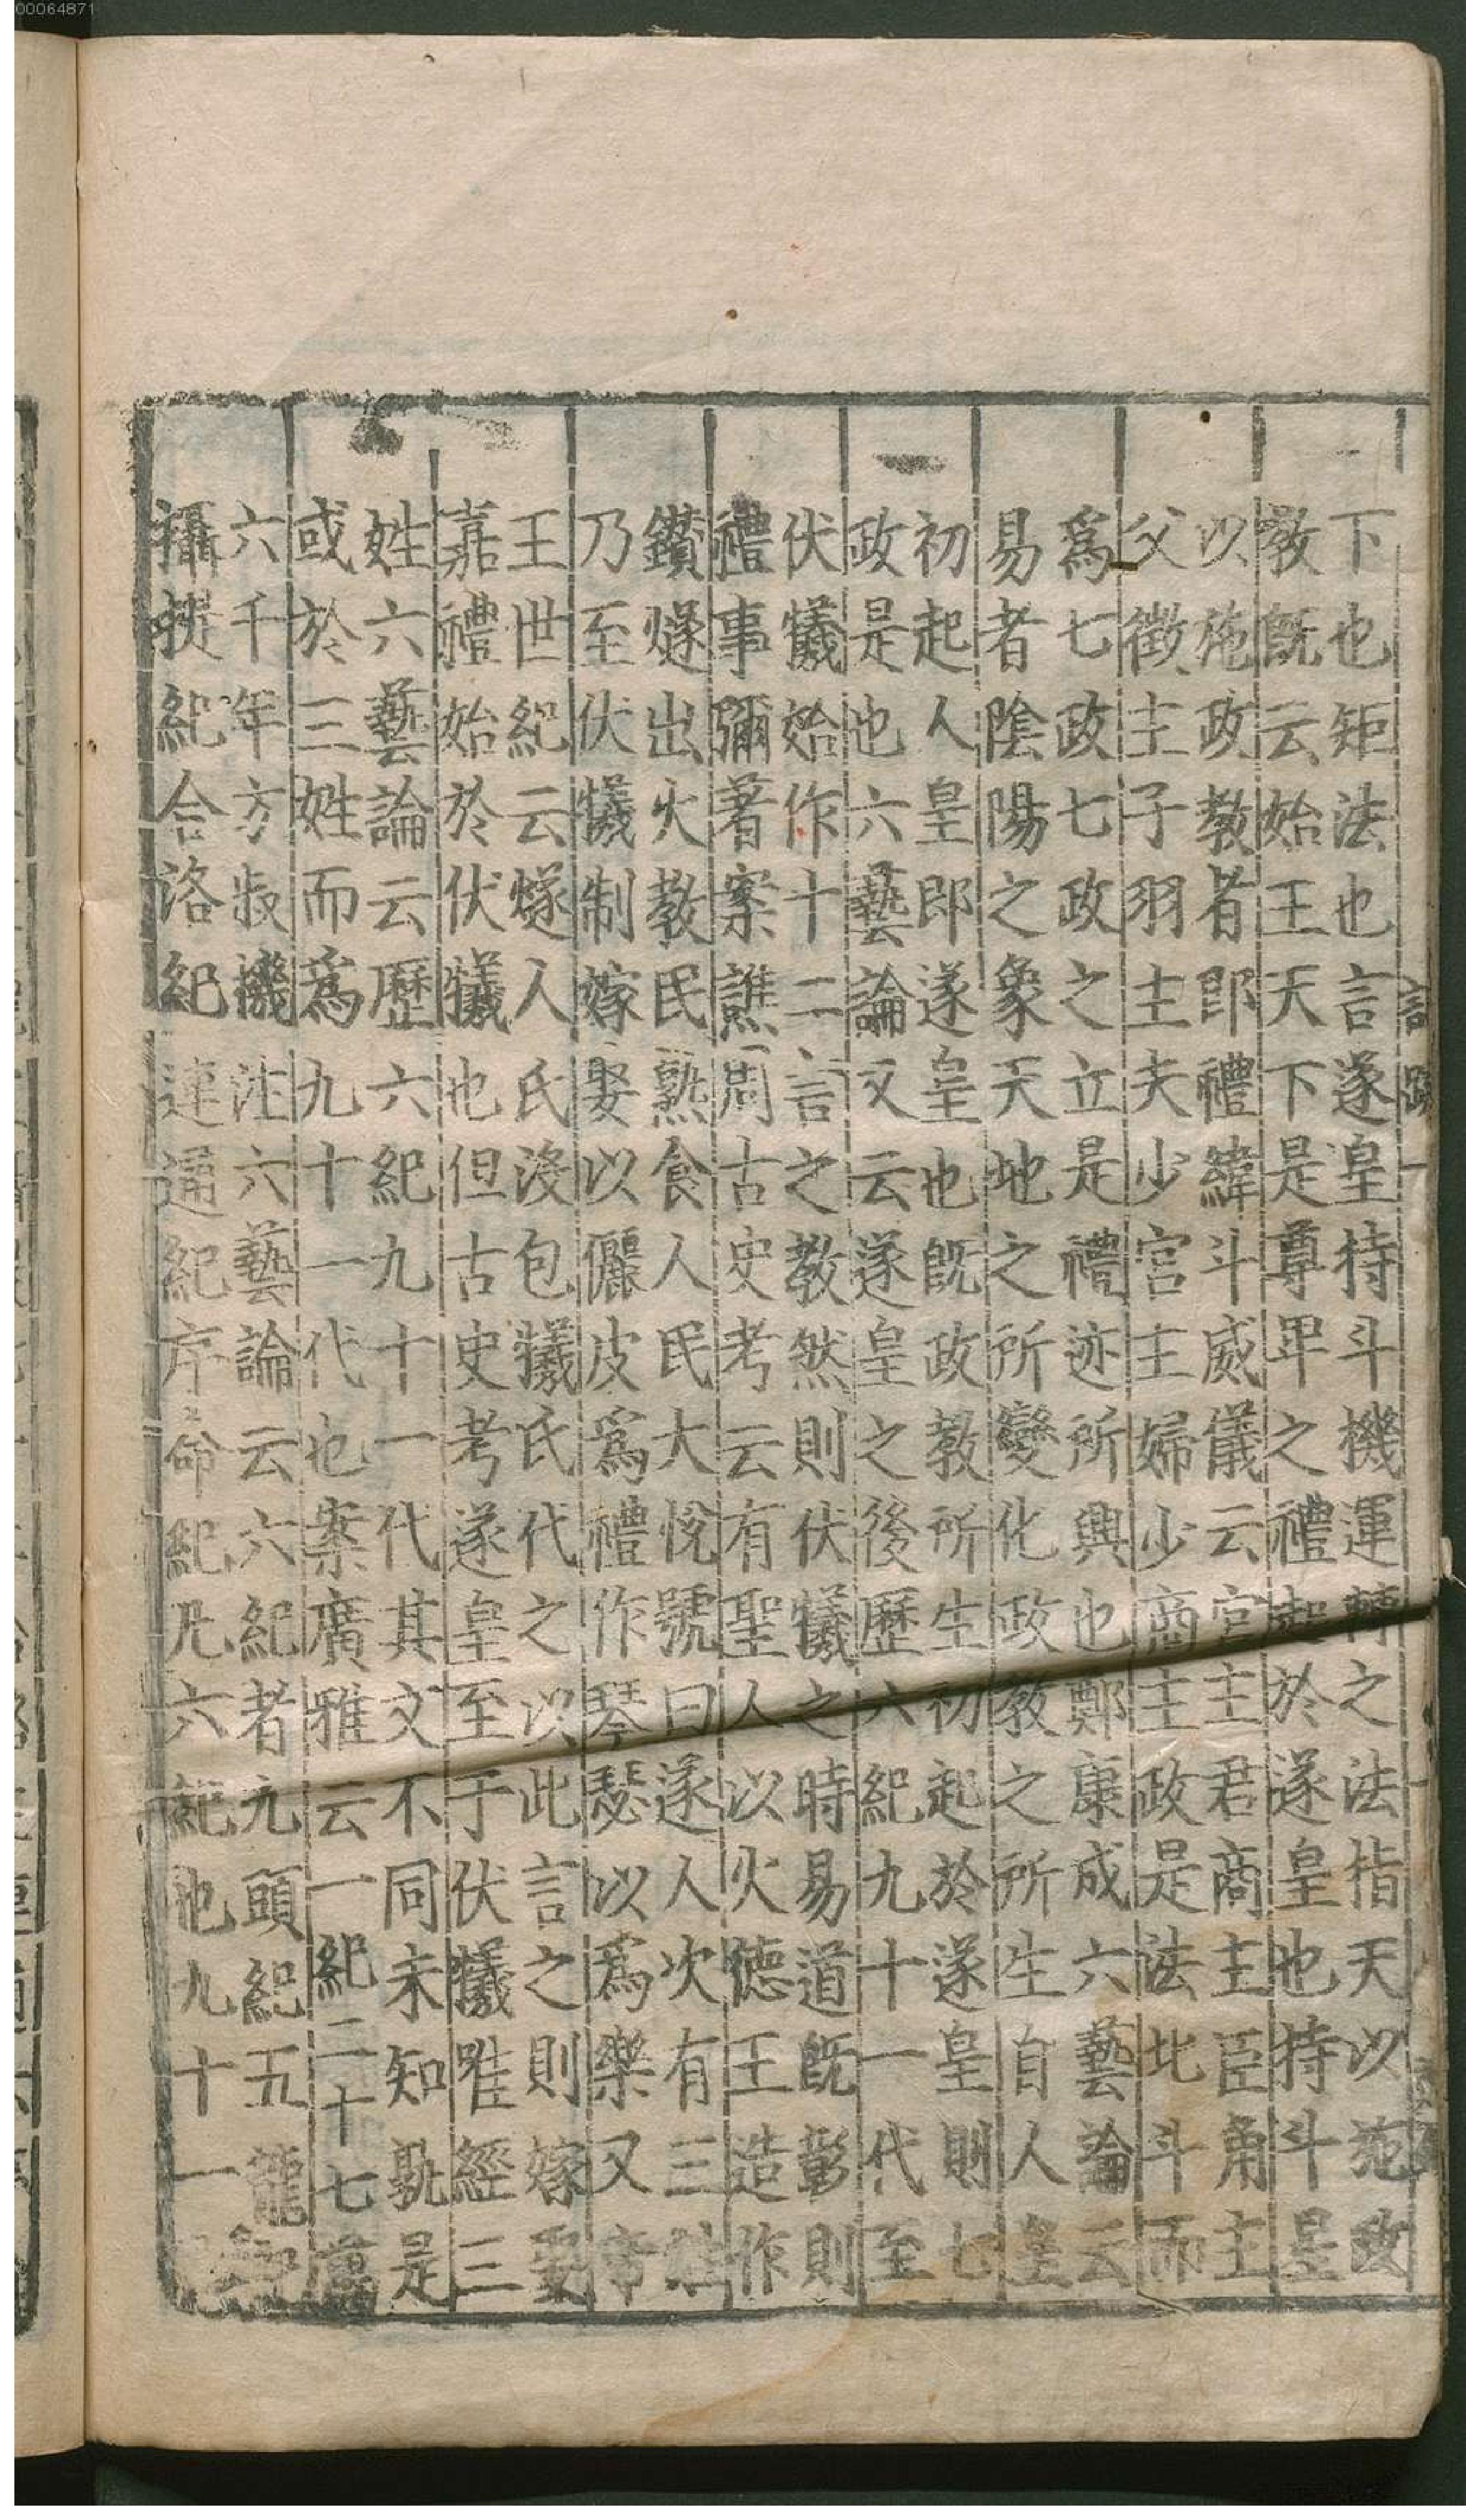 00064871
下也矩法也言遂皇持斗機運轉之法指天以施政
教既云始王天下是尊卑之禮起於遂皇也持斗星
以施政教者即禮緯斗威儀云宮主君商主臣角主
父徵主子羽主夫少宮主婦少商主政是法北斗而
爲七政七政之立是禮迹所興也鄭康成六藝論云
易者陰陽之象天地之所變化政教之所生自人皇
初起人皇即遂皇也既政教所生初起於遂皇則七
政是也六藝論又云遂皇之後歷六紀九十一代至
伏犧始作十二言之教然則伏犧之時易道既彰則
禮事彌著案譙周古史考云有聖人以火德王造作
鑚燧出火教民熟食人民大悅號曰遂人次有三姓
乃至伏犧制嫁娶以儷皮爲禮作琴瑟以爲樂又帝
王世紀云燧人氏沒包犧氏代之以此言之則嫁娶
嘉禮始於伏犧也但古史考遂皇至于伏犧唯經三
姓六藝論云歷六紀九十一代其文不同未知孰是
或於三姓而爲九十一代也案廣雅云一紀二十七萬
六千年方叔機注六藝論云六紀者九頭紀五龍紀
攝提紀合洛紀連通紀序命紀凡六紀也九十一